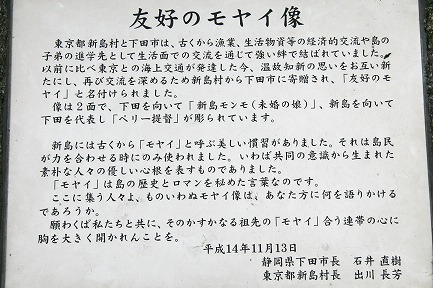 友好のモヤイ像
東京都新島村と下田市は、古くから漁業、生活物資等の経済的交流や島の
子弟の進学先として生活面での交流を通じて強い絆で結ばれていました。
以前に比べ東京との海上交通が発達した今、温故知新の思いをお互い新
たにし、再び交流を深めるため新島村から下田市に寄贈され、「友好のモ
ヤイ」と名付けられました。
像は2面で、下田を向いて「新島モンモ(未婚の娘)」、新島を向いて
下田を代表し「ペリー提督」が彫られています。
新島には古くから「モヤイ」と呼ぶ美しい慣習がありました。それは島民
が力を合わせる時にのみ使われました。いわば共同の意識から生まれた
素朴な人々の優しい心根を表すものでありました。
「モヤイ」は島の歴史とロマンを秘めた言葉なのです。
ここに集う人々よ、ものいわぬモヤイ像は、あなた方に何を語りかける
であろうか。
願わくば私たちと共に、そのかすかなる祖先の「モヤイ」合う連帯の心に
胸を大きく開かれんことを。
平成14年11月13日
静岡県下田市長 石井 直樹
東京都新島村長 出川 長芳